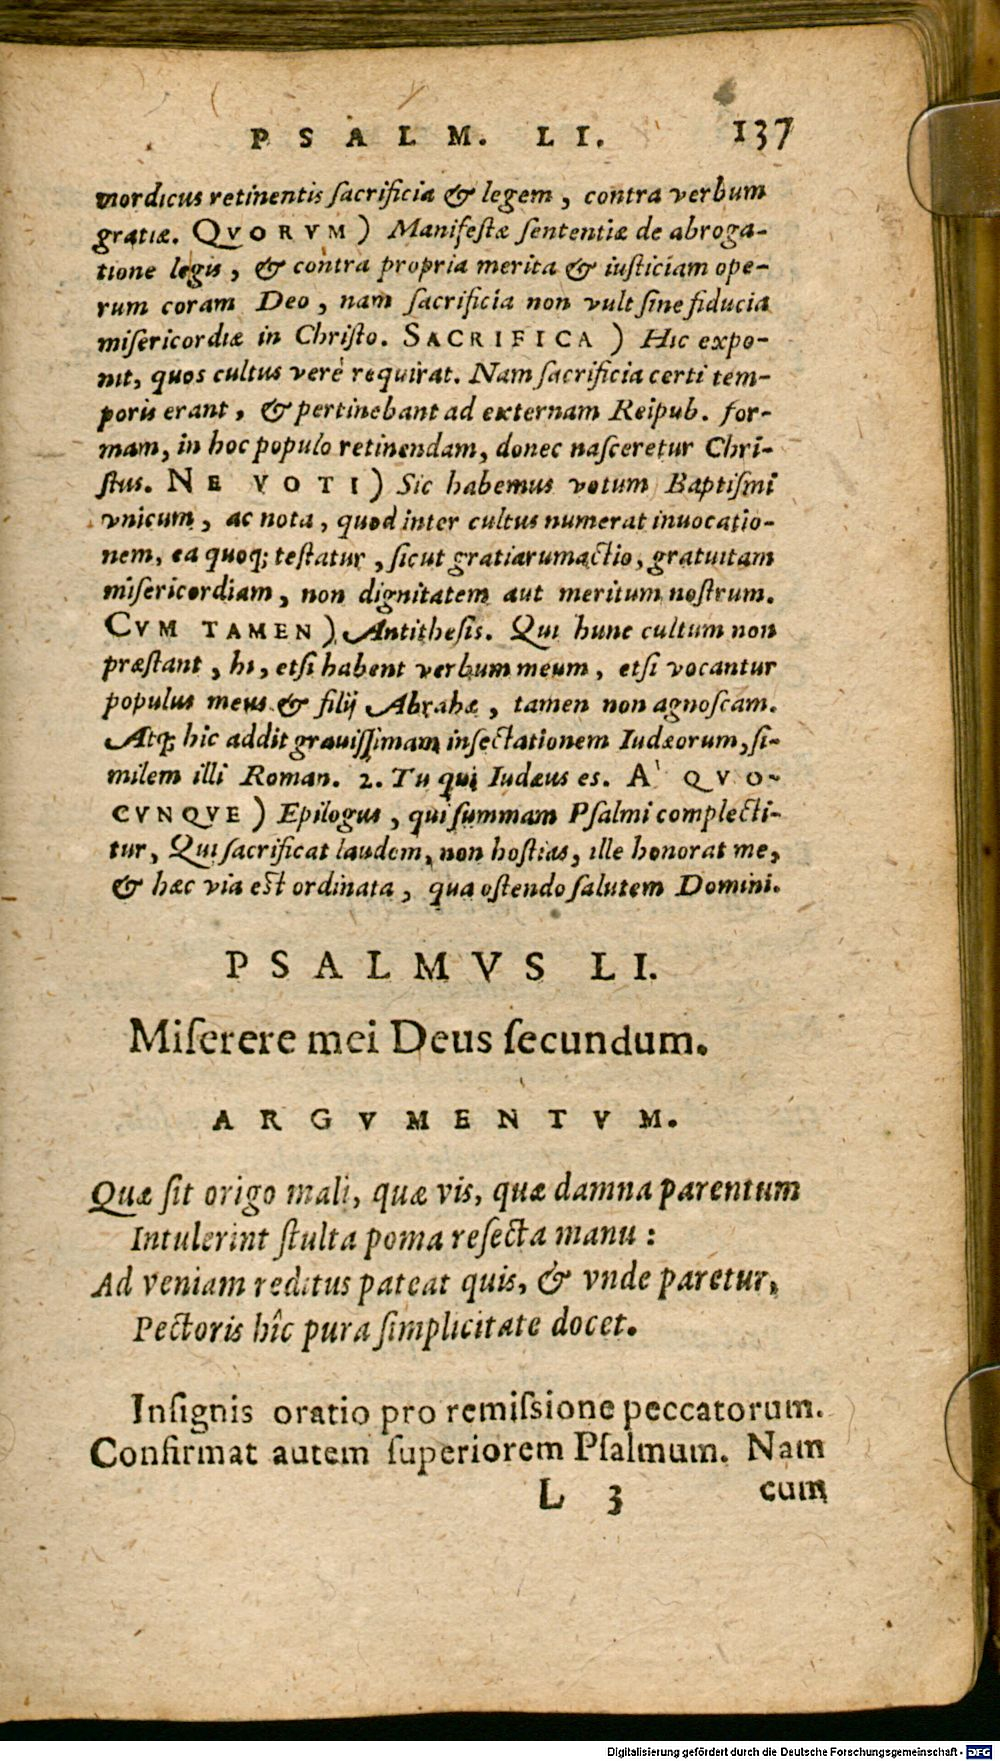 PSALM. LI. 137
mordicus retinentis ſacrificia & legem, contra verbum
gratiæ. QVORVM) Manifeſtæ ſententiæ de abroga-
tione legis, & contra propria merita & iuſticiam ope-
rum coram Deo, nam ſacrificia non vult ſine fiducia
miſericordiæ in Chriſto. SACRIFICA) Hic expo-
nit, quos cultus verè requirat. Nam ſacrificia certi tem-
poris erant, & pertinebant ad externam Reipub. for-
mam, in hoc populo retinendam, donec naſceretur Chri-
ſtus. NE VOTI) Sic habemus votum Baptiſmi
vnicum, ac nota, quod inter cultus numerat inuocatio-
nem, ea quoq; teſtatur, ſicut gratiarumactio, gratuitam
miſericordiam, non dignitatem aut meritum noſtrum.
CVM TAMEN) Antitheſis. Qui hunc cultum non
præſtant, hi, etſi habent verbum meum, etſi vocantur
populus meus & filij Abrahæ, tamen non agnoſcam.
Atq; hic addit grauiſſimam inſectationem Iudæorum, ſi-
milem illi Roman. 2. Tu qui Iudæus es. A' QVO-
CVNQVE) Epilogus, qui ſummam Pſalmi complecti-
tur, Qui ſacrificat laudem, non hoſtias, ille honorat me,
& hæc via eſt ordinata, qua oſtendo ſalutem Domini.
PSALMVS LI.
Miſerere mei Deus ſecundum.
ARGVMENTVM.
Quæ ſit origo mali, quæ vis, quæ damna parentum
Intulerint ſtulta poma reſecta manu:
Ad veniam reditus pateat quis, & vnde paretur,
Pectoris hîc pura ſimplicitate docet.
Inſignis oratio pro remiſsione peccatorum.
Confirmat autem ſuperiorem Pſalmum. Nam
L 3 cum
Digitalisierung gefördert durch die Deutsche Forschungsgemeinschaft - DFG